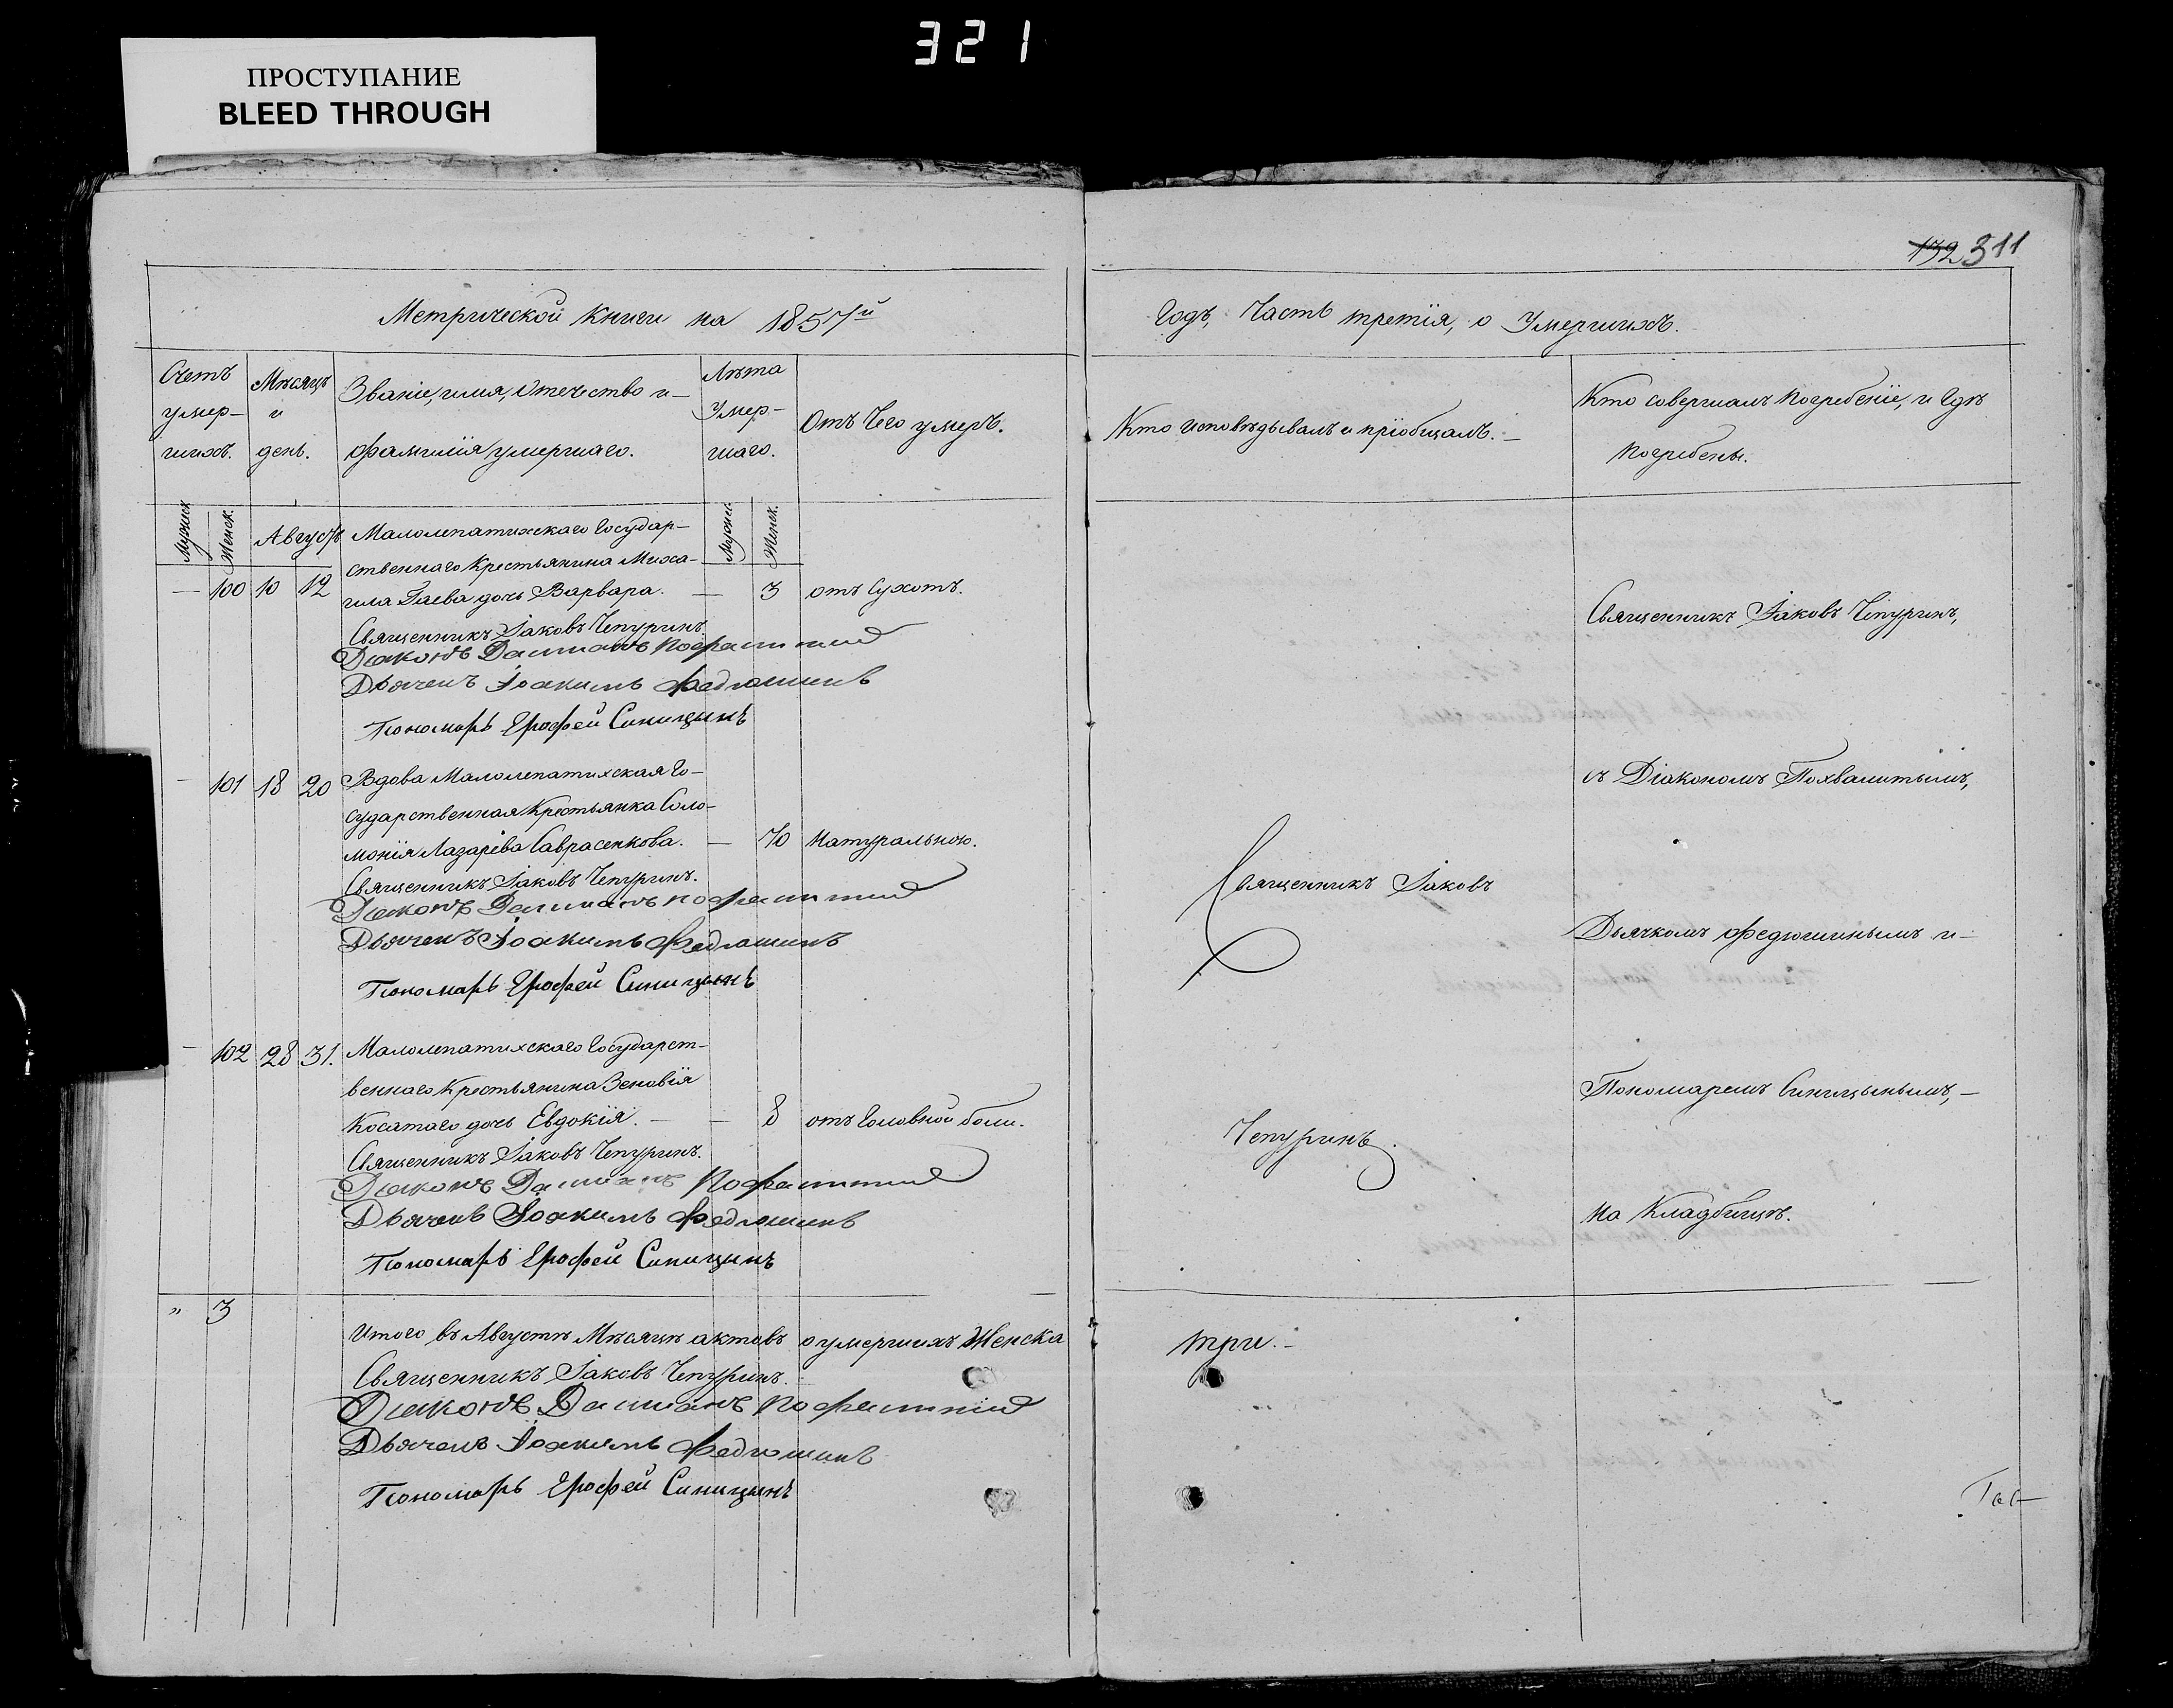 321
ПРОСТУПАНИЕ
BLEED THROUGH
132 311
Метрической книги на 1857й
Счетъ умер-шихъ.
Мѣсяцъ и день.
Званіе, имя, отечество и фамилія умершаго.
Лѣта умер-шаго.
Отъ чего умеръ.
Мужск. Женск.
Августъ
Мужск. Женск.
Малолепатихскаго Государ-
ственнаго крестьянина Миха-
— 100 10 12 ила Гаева дочь Варвара. — 3 отъ сухотъ.
Священникъ Іаковъ Чепуринъ.
Діаконъ Даміанъ
Дьячекъ Іоакимъ Федюшинъ
Пономарь Ерофей Синицынъ
— 101 18 20 Вдова Малолепатихская Го-
сударственная Крестьянка Соло-
монія Лазарева Саврасенкова. — 70 натуральною.
Священникъ Іаковъ Чепуринъ.
Діаконъ Даміанъ
Дьячекъ Іоакимъ Федюшинъ
Пономарь Ерофей Синицынъ
— 102 28 31. Малолепатихскаго Государст-
веннаго Крестьянина Зеновія
Косатаго дочь Евдокія. — — 8 отъ головной боли.
Священникъ Іаковъ Чепуринъ.
Діаконъ Даміанъ
Дьячекъ Іоакимъ Федюшинъ
Пономарь Ерофей Синицынъ
" 3
Итого въ Августѣ Мѣсяцѣ актовъ о умершихъ Женска
Священникъ Іаковъ Чепуринъ.
Діаконъ Даміанъ
Дьячекъ Іоакимъ Федюшинъ
Пономарь Ерофей Синицынъ
Годъ, Часть третія, о Умершихъ.
Кто исповѣдывалъ и пріобщалъ. —
Кто совершалъ погребеніе, и гдѣ
погребены.
Священникъ Іаковъ
Чепуринъ.
Священникъ Іаковъ Чепуринъ,
съ Діакономъ Похвалитымъ,
Дьячкомъ Федюшинымъ и —
Пономаремъ Синицынымъ, —
на Кладбищѣ.
три. —